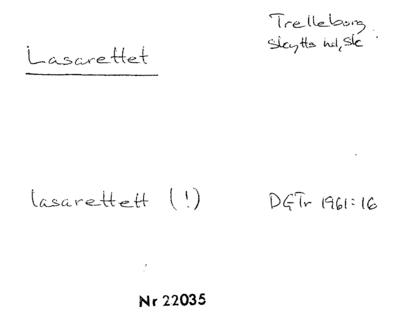 Lasarettet
Trelleborg
Skytts hd, Sk
lasarettett (!)
DGTr 1961:16
Nr 22035